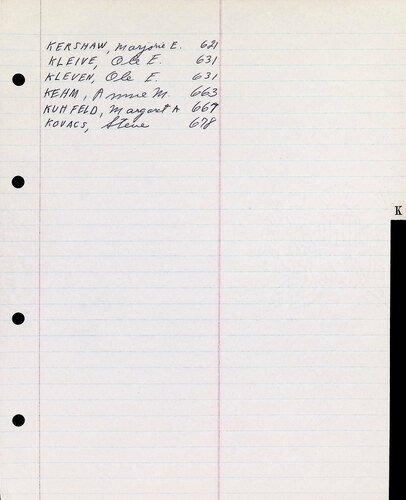 KERSHAW, Marjorie E. 621
KLEIVE, Ole E. 631
KLEVEN, Ole E. 631
KEHM, Annie M. 663
KUHFELD, Margaret A 667
KOVACS, Steve 678
K